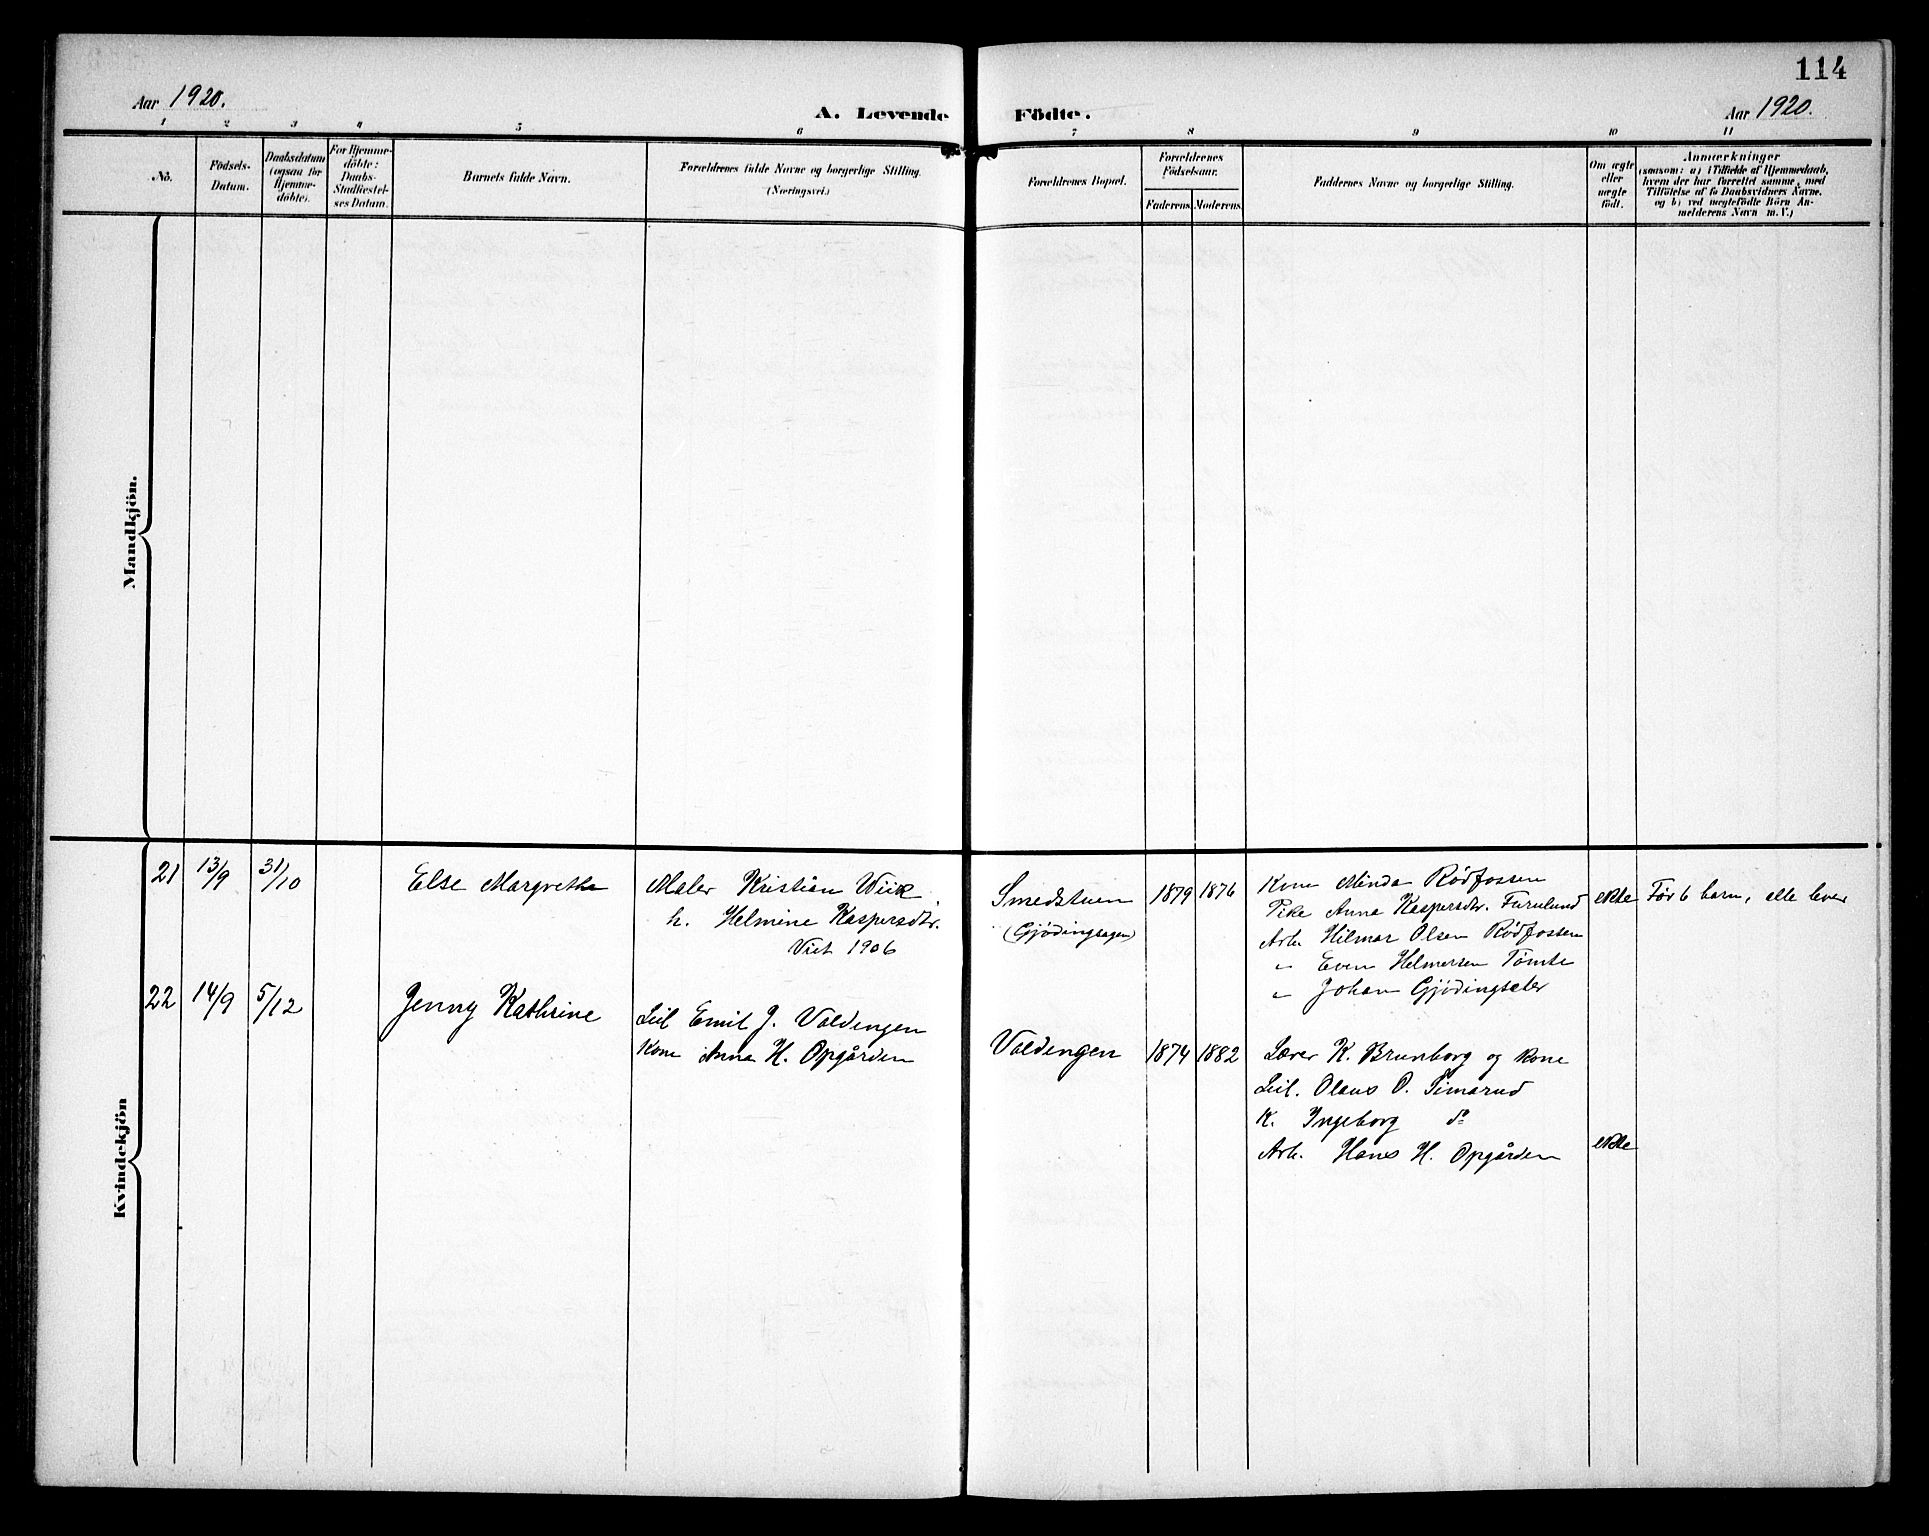 114
Aar 1920.
A. Levende Födte.
Aar 1920.
1 2 3 4 5 6 7 8 9 10 11
No.
Födsels-
Datum.
Daabsdatum
(ogsaa for
Hjemme-
döbte).
For Hjemme-
döbte:
Daabs-
Stadfæstel-
ses Datum.
Barnets fulde Navn.
Forældrenes fulde Navne og borgerlige Stilling.
(Næringsvei.)
Forældrenes Bopæl.
Forældrenes
Födselsaar.
Faderens. Moderens.
Faddernes Navne og borgerlige Stilling.
Om ægte
eller
uægte
födt.
Anmærkninger
(saasom: a) i Tilfælde af Hjemmedaab,
hvem der har forrettet samme, med
Tilföielse af to Daabsvidners Navne,
og b) ved uegtefödte Börn An-
melderens Navn m. V.)
Mandkjön.
Kvindekjön
21 13/9 31/10 Else Margrethe
Maler Kristian Wiik
h. Helmine Kaspersdtr.
Viet 1906
Smedstuen
(Gjödingsagen)
1879 1876
Kone Minda Rödfossen
Pike Anna Kaspersdtr. Furulund
Arb. Hilmar Olsen Rödfossen
" Even Helmersen Tömte
" Johan Gjödingseter
ekte
Før 6 barn, alle lever
22 14/9 5/12 Jenny Kathrine
Leil Emil J. Valdengen
Kone Anna H. Opgården
Valdengen
1874 1882
Lærer K. Brunborg og kone
Leil. Olaus O. Simarud
K. Ingeborg do
Arb. Hans H. Opgården
ekte